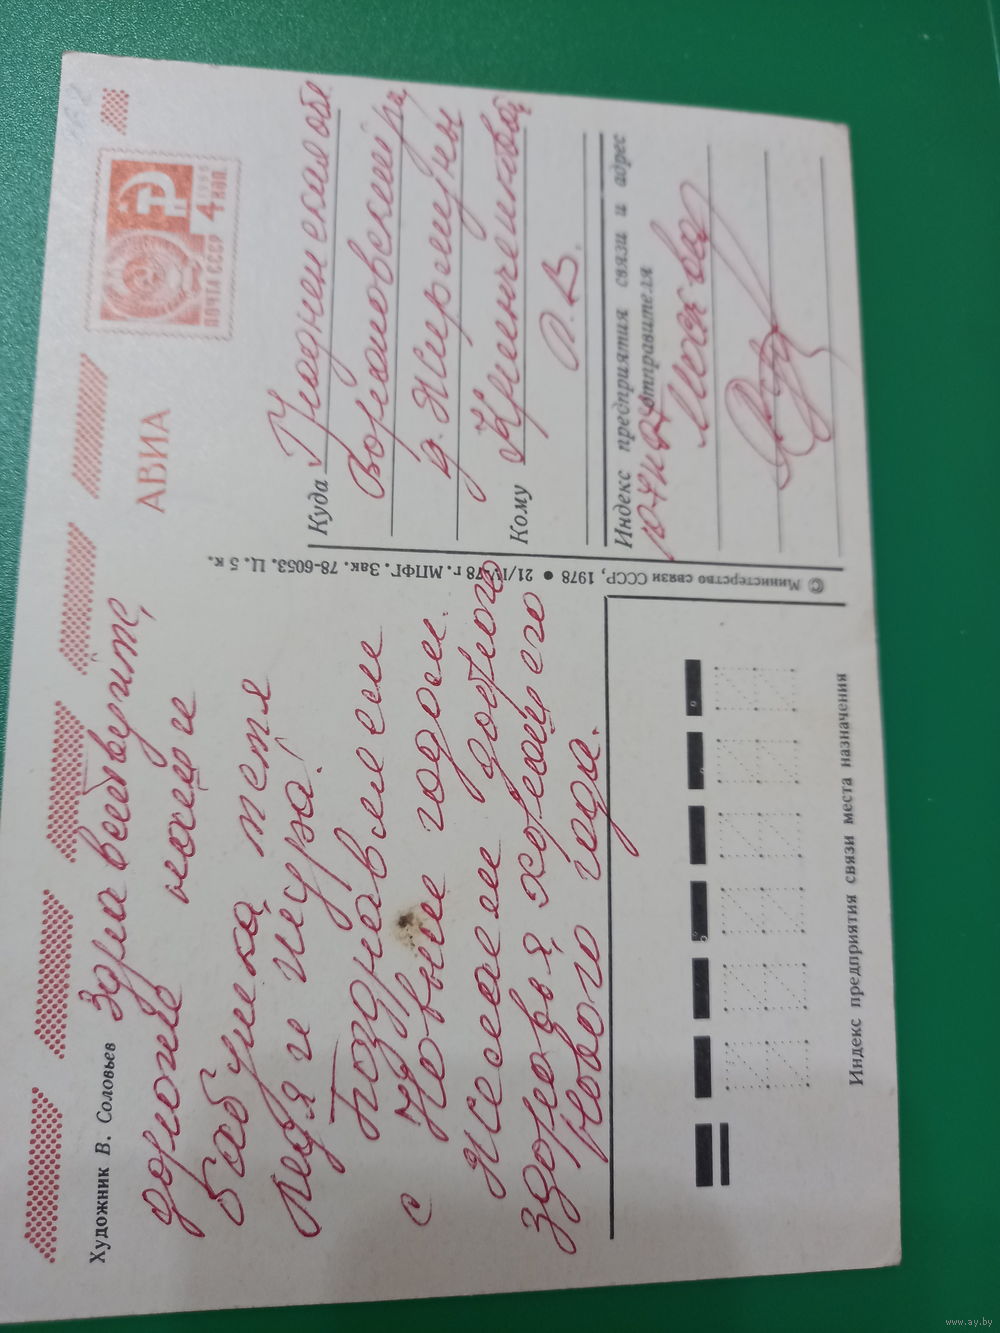 Художник В. Соловьев
Здравствуйте,
дорогие наши
бабушка, тетя
Лидя и Шура!
Поздравляем
с Новым годом.
Желаем доброго
здоровья, хорошего
Нового года.
© Министерство связи СССР, 1978 ● 21/IV-78 г. МПФГ. Зак. 78-6053. Ц. 5 к.
АВИА
ПОЧТА СССР
4 КОП.
Куда Гродненская обл.
Вороновский р-н
д.
Кому
Л. В.
Индекс предприятия связи и адрес
отправителя
Москва
Индекс предприятия связи места назначения
www.ay.by